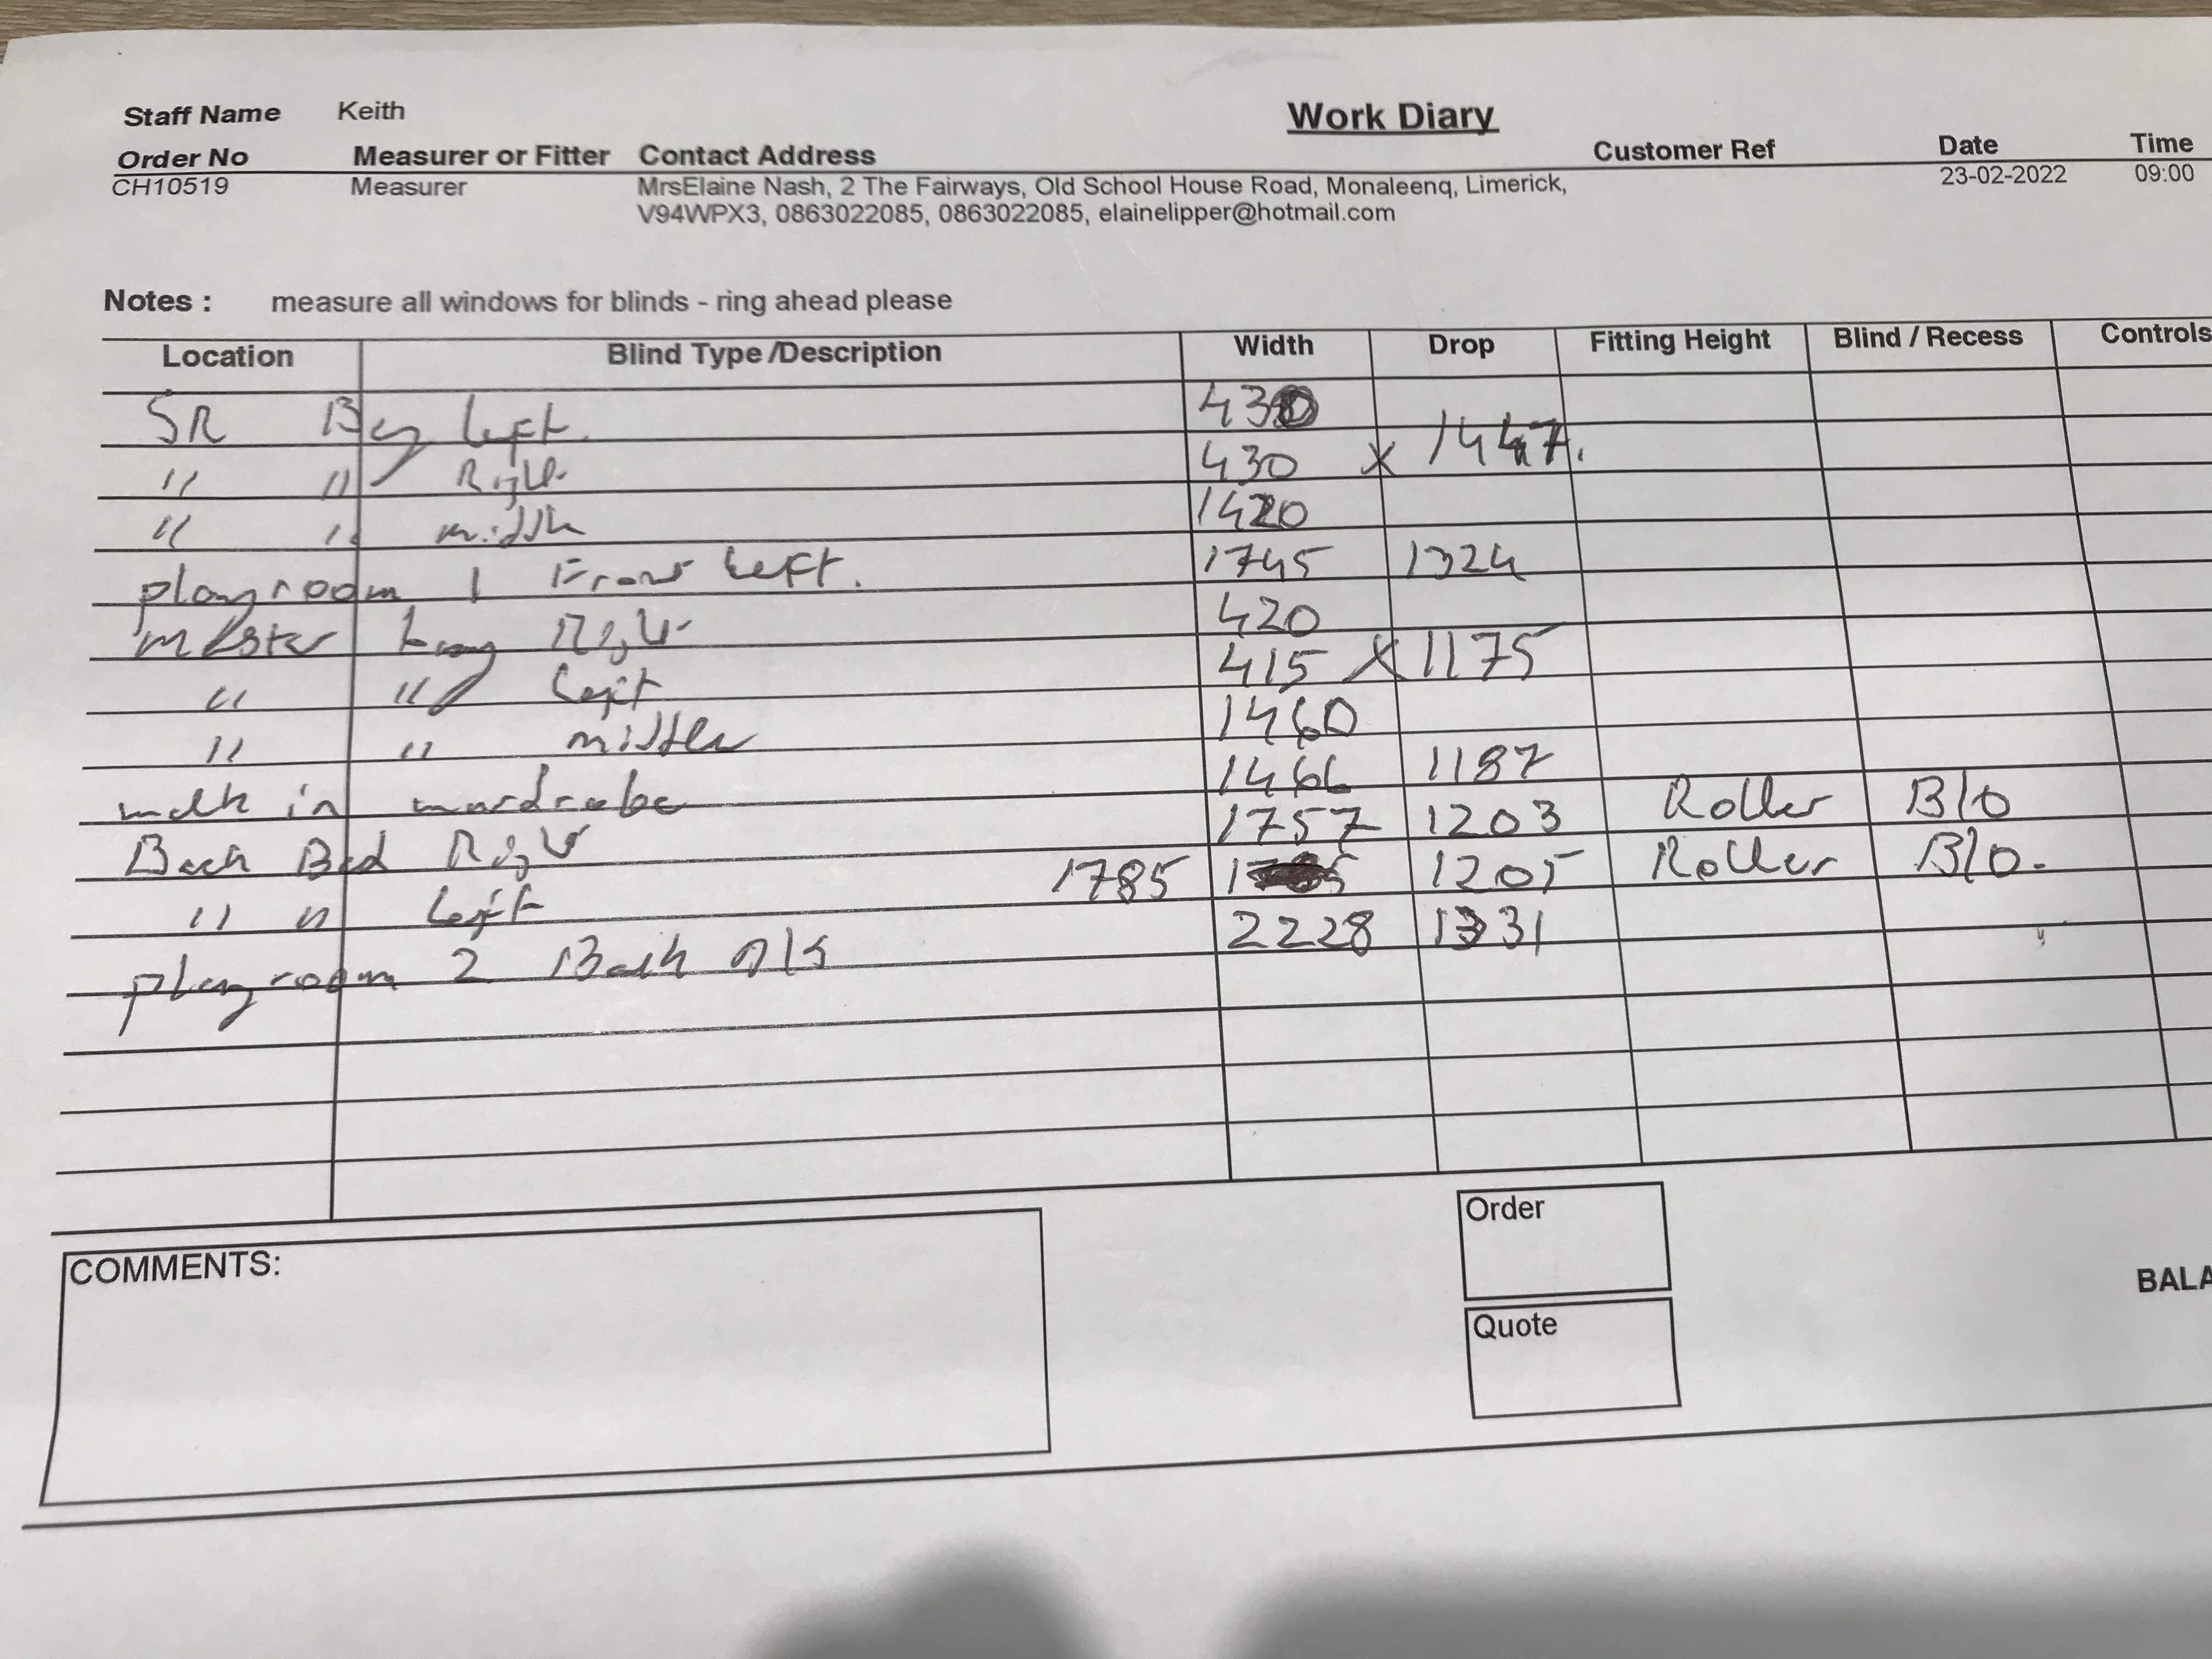 Staff Name Keith
Work Diary
Order No Measurer or Fitter Contact Address Customer Ref Date Time
CH10519 Measurer MrsElaine Nash, 2 The Fairways, Old School House Road, Monaleenq, Limerick, 23-02-2022 09:00
V94WPX3, 0863022085, 0863022085, elainelipper@hotmail.com
Notes : measure all windows for blinds - ring ahead please
Location Blind Type /Description Width Drop Fitting Height Blind / Recess Controls
SR Bay Left. 430
" " Right 430 x 1447.
" " middle 1420
playroom 1 Front Left. 1745 1324
master bay Right 420
" " Left 415 x 1175
" " middle 1460
walk in wardrobe 1466 1187
Back Bed Right 1757 1203 Roller B/O
" " Left 1785 1205 Roller B/O.
playroom 2 Back 2228 1331
COMMENTS:
Order
Quote
BALA